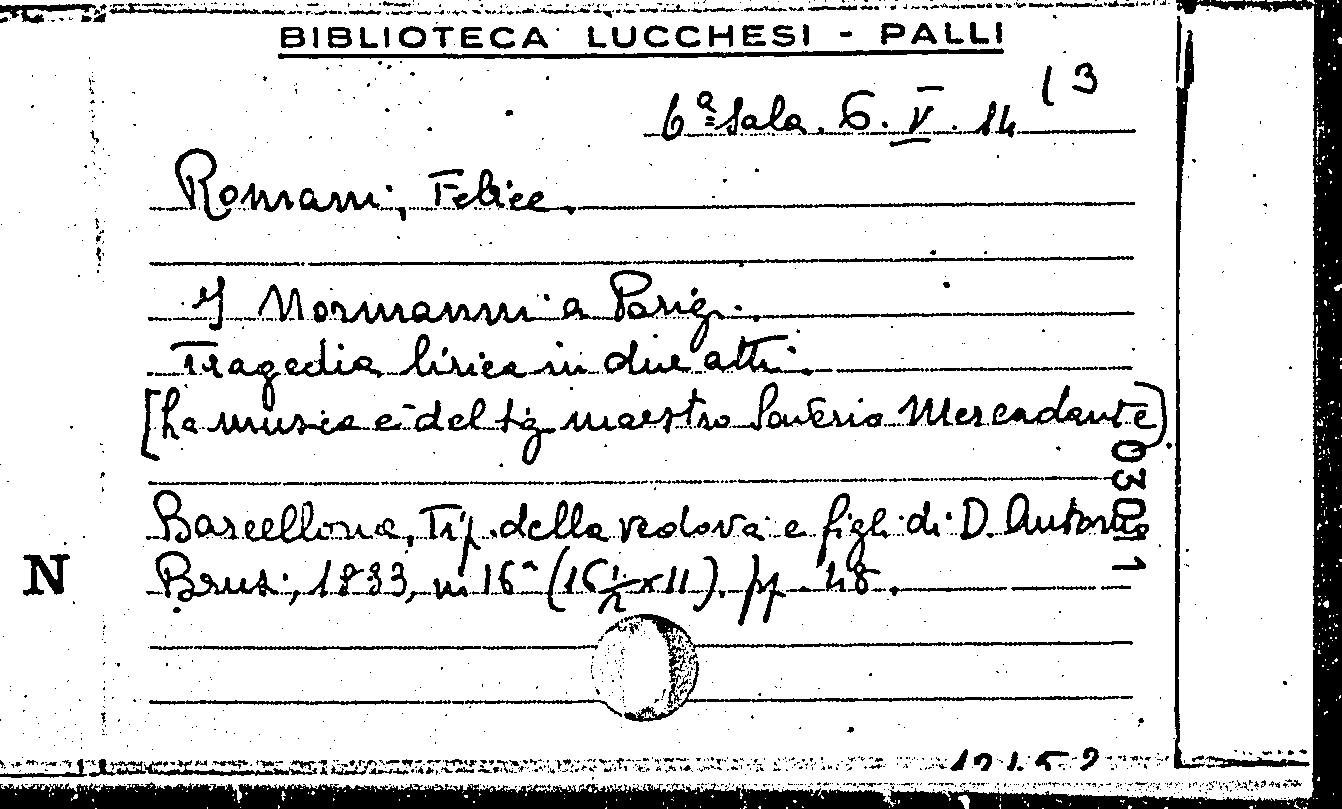 BIBLIOTECA LUCCHESI - PALLI
6ª Sala. 6. V. 14 (3
Romani, Felice.
I Normanni a Parigi.
Tragedia lirica in due atti.
[La musica è del sig. maestro Saverio Mercadante]
03011
Barcellona, Tip. della vedova e figli di D. Antonio
N
Brusi, 1833, in 16° (16 1/2 x 11). pp. 48.